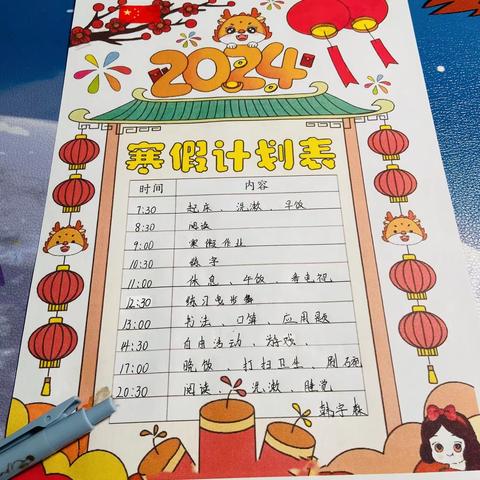 2024
寒假计划表
时间 内容
7:30 起床、洗漱、早饭
8:30 阅读
9:00 寒假作业
10:30 练字
11:00 休息、午饭、看电视
12:30 练习曳步舞
13:00 书法、口算、应用题
14:30 自由活动、游戏、
17:00 晚饭、打扫卫生、刷碗
20:30 阅读、洗漱、睡觉
韩宇